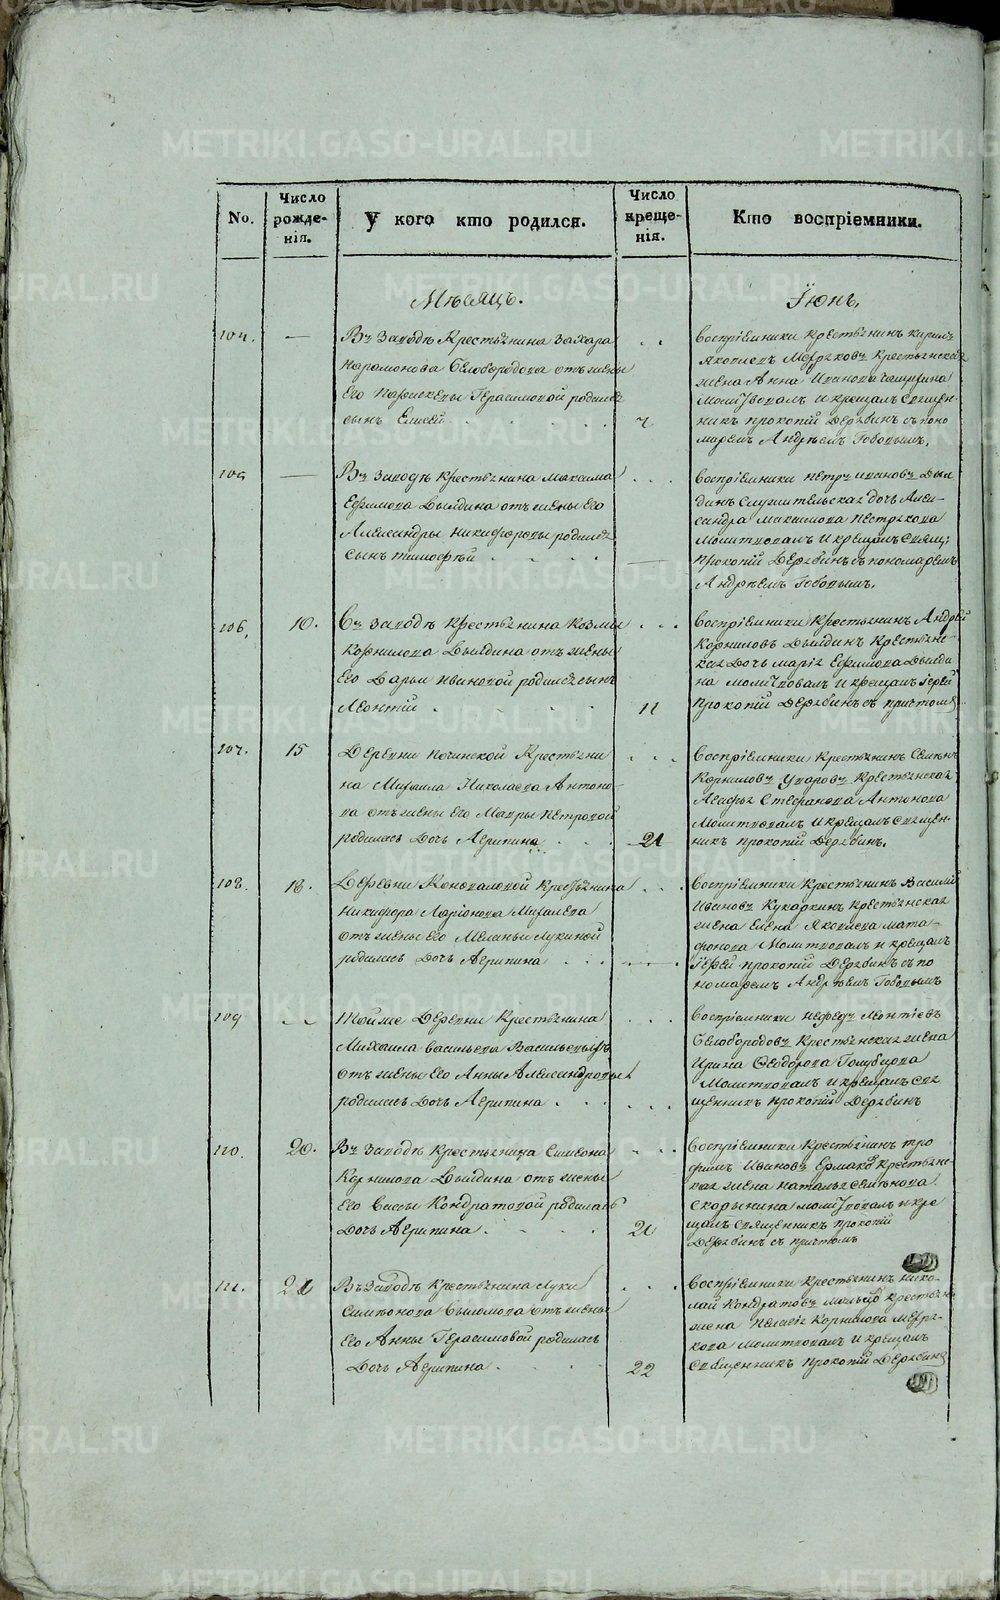 No.
Число рожде-нія.
У кого кто родился.
Число креще-нія.
Кто воспріемники.
Мѣсяцъ.
Іюнь,
104.
Въ Заводѣ Крестьянина Захара
Парамонова Белобородова отъ жены
Его Парасковьи Герасимовой родился
сынъ Елисей
7
Воспріемники Крестьянинъ Кирилъ
Яковлевъ Мезряковъ Крестьянская
жена Анна Иванова
Молитвовалъ и крещалъ Священ-
никъ Прокопій Дерябинъ съ поно
маремъ Андрѣемъ Гобовымъ,
105
Въ Заводѣ Крестьянина Максима
Ефимова Былдина отъ жены Его
Александры Никифоровы родился
Сынъ Тимофѣй
Воспріемники Петръ Ивановъ Был
динъ Служительская дочь Алек-
сандра Максимова Пестрякова
Молитвовалъ и крещалъ Свящ:
Прокопій Дерябинъ съ пономаремъ
Андрѣемъ Гобовымъ,
106,
10.
Въ Заводѣ Крестьянина Козмы
Корнилова Былдина отъ жены
Его Дарьи Ивановой родился сынъ
Леонтій
11
Воспріемники Крестьянинъ Андрей
Корниловъ Былдинъ Крестьянс-
кая Дочь Марія Ефимова Былди
на молитвовалъ и крещалъ Іерей
Прокопій Дерябинъ съ причтомъ
107.
15
Деревни Починской Крестьяни
на Михаила Николаева Антоно-
ва отъ жены Его Мавры Петровой
родилась Дочь Агрипина
21
Воспріемники Крестьянинъ Семенъ
Корниловъ Уваровъ Крестьянская
Агафья Стефанова Антонова
Молитвовалъ и крещалъ Священ-
никъ Прокопій Дерябинъ.
108.
18.
Деревни Коноваловой Крестьянина
Никифора Ларіонова Михалева
отъ жены Его Меланьи Лукиной
родилась Дочь Агрипина
Воспріемники Крестьянинъ Василій
Ивановъ Кукаркинъ Крестьянская
жена Елена Яковлева Мата-
фонова Молитвовалъ и крещалъ
Іерей Прокопій Дерябинъ съ по
номаремъ Андрѣемъ Гобовымъ
109
Той же Деревни Крестьянина
Михаила Васильева Васильевыхъ
отъ жены Его Анны Александровы
родилась Дочь Агрипина
Воспріемники Нефедъ Леонтіевъ
Белобородовъ Крестьянская жена
Ирина Феодорова Голубцова
Молитвовалъ и крещалъ Свя
щенникъ Прокопій Дерябинъ
110.
20.
Въ Заводѣ Крестьянина Симеона
Корнилова Былдина отъ жены
Его Васы Кондратовой родилась
Дочь Агрипина
21
Воспріемники Крестьянинъ Тро
фимъ Ивановъ Ермаковъ Крестьянс-
кая жена Наталья Семенова
Скорынина молитвовалъ и кре
щалъ Священникъ Прокопій
Дерябинъ съ причтомъ
111.
21
Въ Заводѣ Крестьянина Луки
Симеонова отъ жены
Его Анны Герасимовой родилась
Дочь Агрипина
22
Воспріемники Крестьянинъ Нико-
лай Кондратовъ
жена Пелагія Корнилова Мезря-
кова молитвовалъ и крещалъ
Священникъ Прокопій Дерябинъ
METRIKI.GASO-URAL.RU